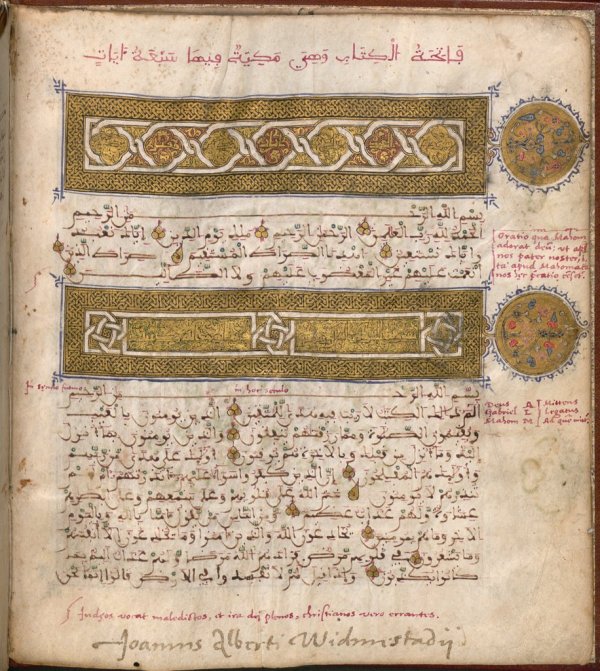 فاتحة الكتاب وهي مكية فيها سبعة ءايات
بسم الله الرحمن الرحيم
الحمد لله رب العلمين الرحمن الرحيم ملك يوم الدين اياك نعبد
واياك نستعين اهدنا الصراط المستقيم صراط الذين
انعمت عليهم غير المغضوب عليهم ولا الضالين
Oratio qua Mahom
adorat deum, ut apud
nos pater noster, i
ta apud Mahometa
nos hec oratio
بسم الله الرحمن الرحيم
الم ذلك الكتب لا ريب فيه هدى للمتقين الذين يومنون بالغيب
ويقيمون الصلوة ومما رزقنهم ينفقون والذين يومنون بما انزل
اليك وما انزل من قبلك وبالاخرة هم يوقنون اولئك على هدى من ربهم
واولئك هم المفلحون ان الذين كفروا سواء عليهم ءانذرتهم ام لم
تنذرهم لا يومنون ختم الله على قلوبهم وعلى سمعهم وعلى ابصرهم
غشوة ولهم عذاب عظيم ومن الناس من يقول ءامنا بالله وباليوم
الاخر وما هم بمومنين يخدعون الله والذين ءامنوا وما يخدعون الا انفسهم
وما يشعرون في قلوبهم مرض فزادهم الله مرضا ولهم عذاب اليم بما
كانوا يكذبون واذا قيل لهم لا تفسدوا في الارض قالوا انما نحن
in hoc
Deus A Mittens
Gabriel L Legatus
Mahom M Ad quem
Iudeos vocat maledictos, et ira dei plenos, christianos vero errantes.
Joannis Alberti Widmestadij